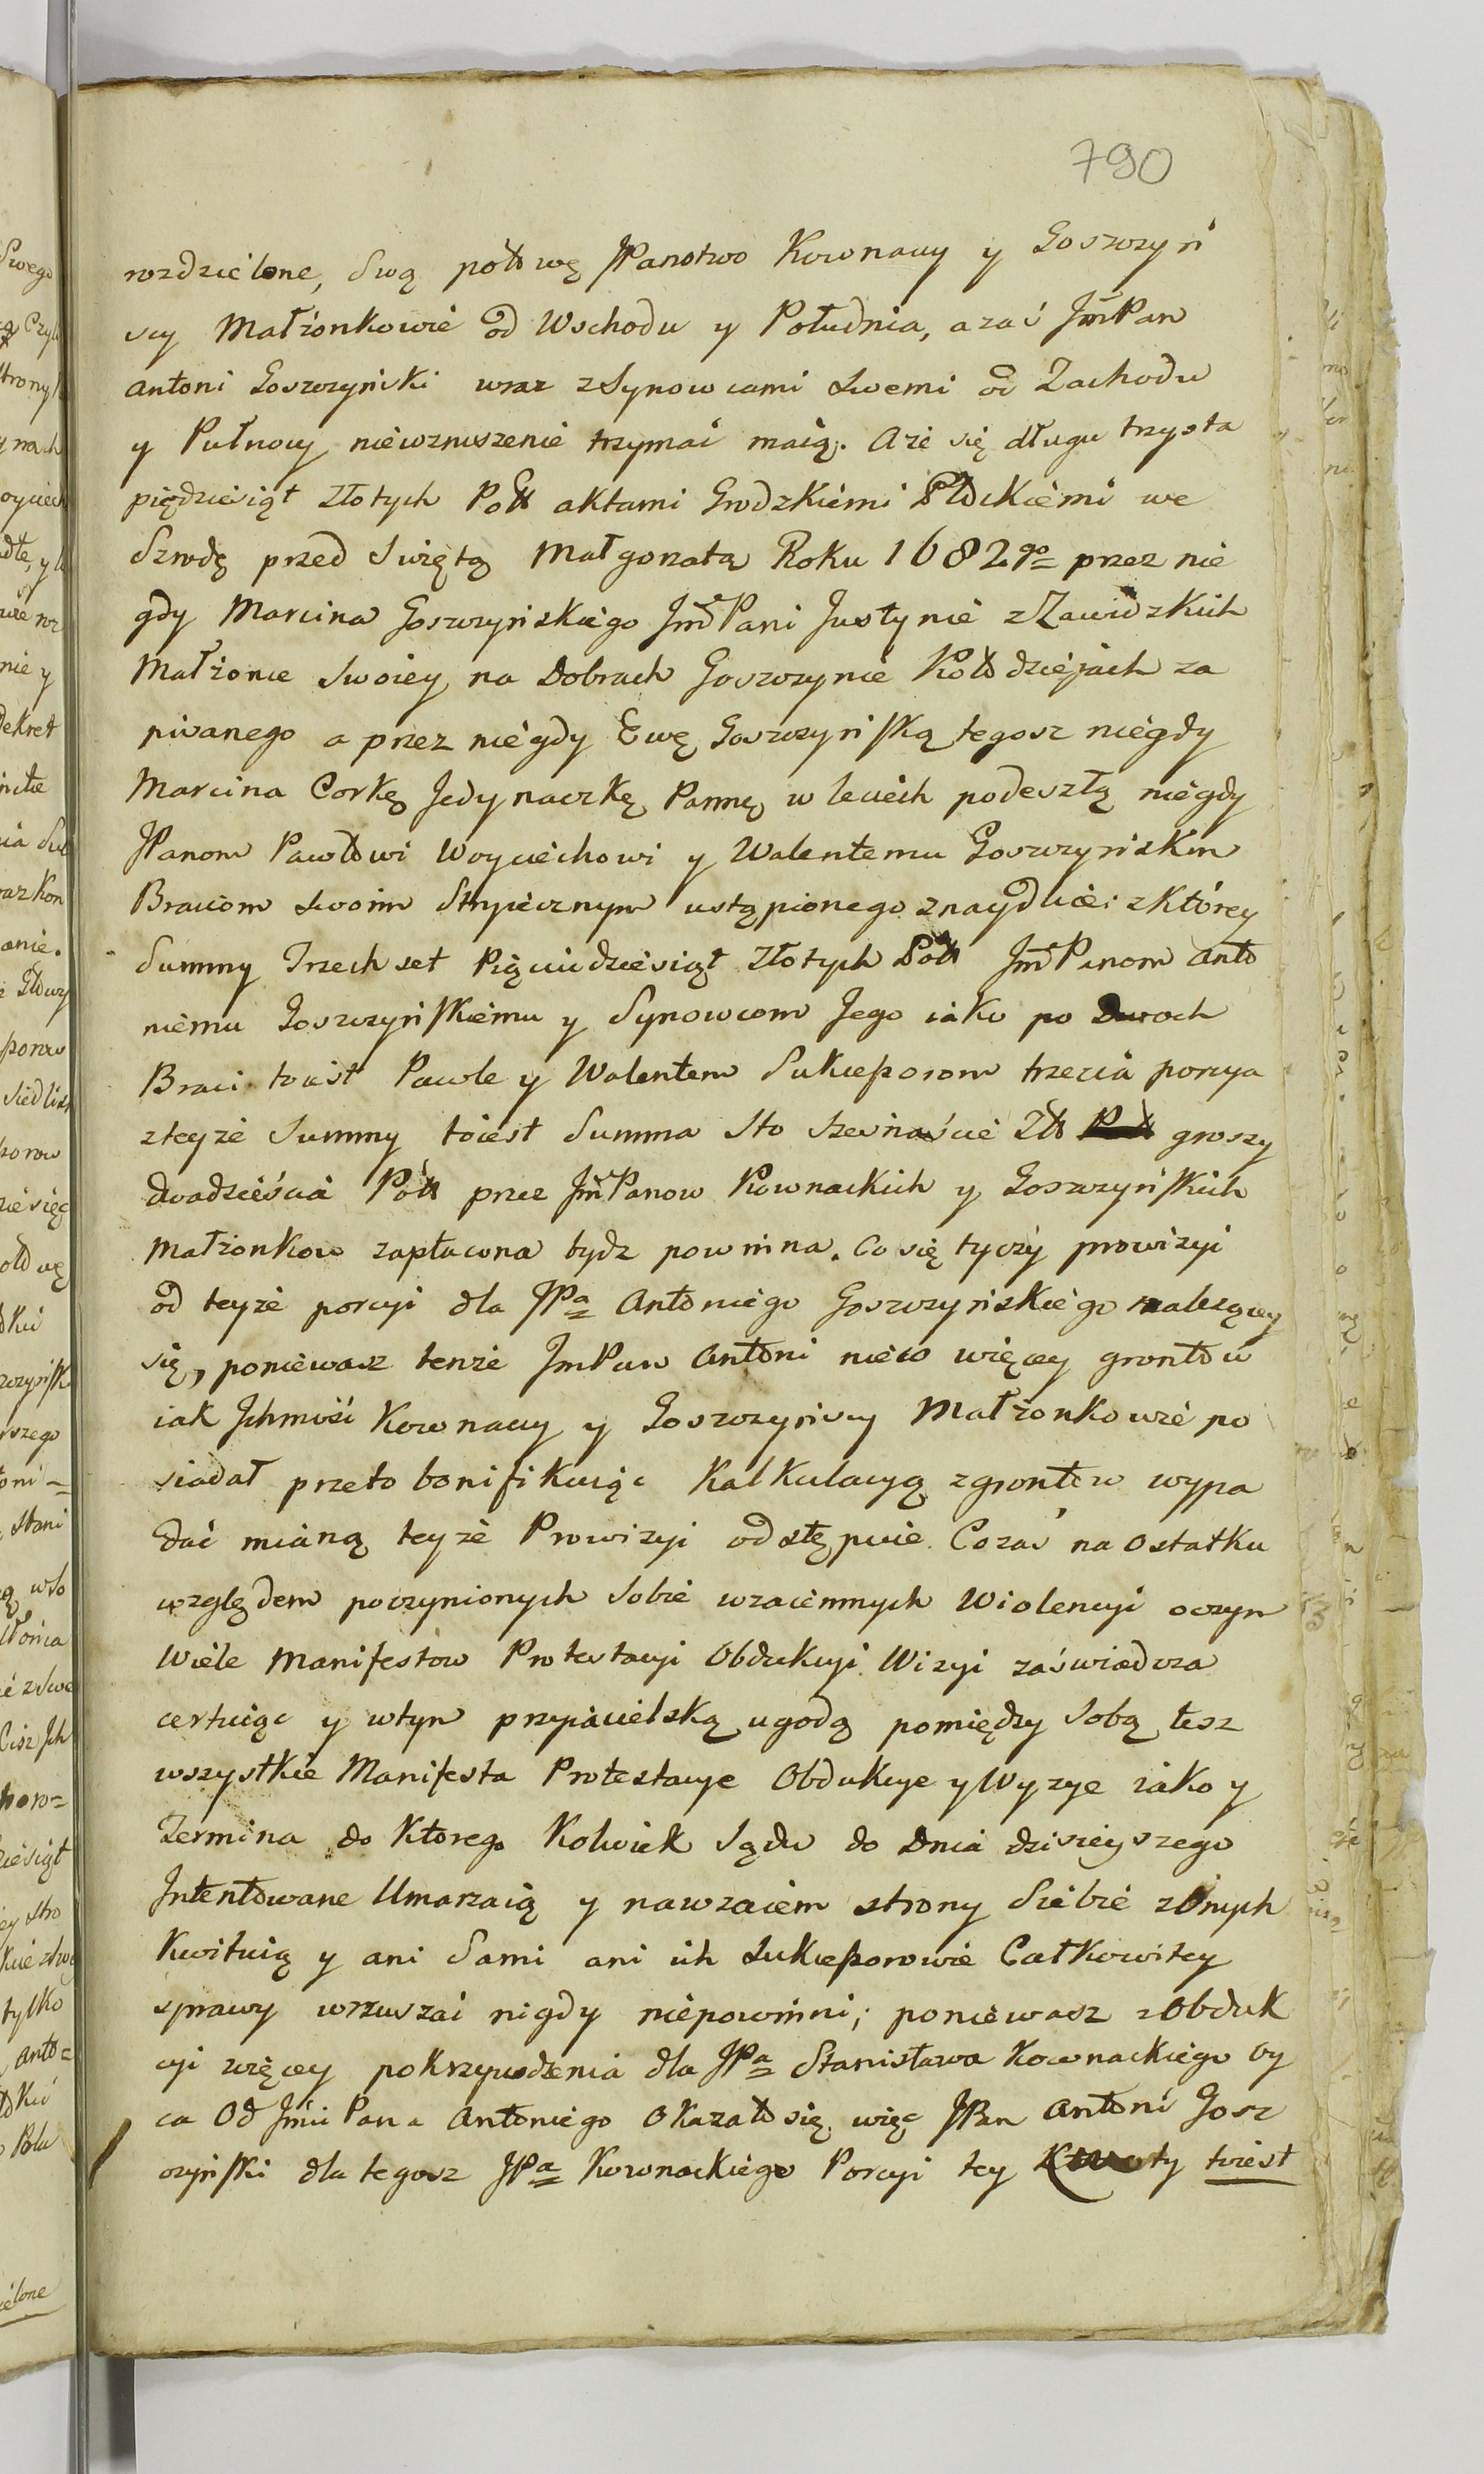 790
rozdzielone, Swą połowę JPanstwo Kownaccy y Goszczyń
scy Małżonkowie od Wschodu y Południa, azaś JmPan
Antoni Goszczyński wraz z Synowcami Swemi od Zachodu
y Pułnocy niewzruszenie trzymać maią. A że się długu trzysta
pięćdziesiąt Złotych Poll aktami Grodzkiemi Płockiemi we
Szrodę przed Swiętą Małgorzatą Roku 1682go przez nie
gdy Marcina Goszczyńskiego Jm Pani Justynie z Zawidzkich
Małżonce Swoiey na Dobrach Goszczynie Kołodziejach za
pisanego a przez niegdy Ewę Goszczyńską tegosz niegdy
Marcina Corkę Jedynaczkę Pannę w leciech podeszłą niegdy
JPanom Pawłowi Woyciechowi y Walentemu Goszczyńskim
Braciom Swoim Stryiecznym ustąpionego znayduie: z którey
Summy Trzechset Pięciudziesiąt Złotych Poll Jm Panom Anto
niemu Goszczyńskiemu y Synowcom Jego iako po Dwoch
Braci toiest Pawle y Walentem Sukcessorom trzecia porcya
z teyże Summy toiest Summa Sto Szesnaście Zło groszy
dwadzieścia Poll przez Jm Panow Kownackich y Goszczyńskich
Małżonkow zapłacona bydz powinna. Co się tyczy prowizyi
od teyże porcyi dla JPa Antoniego Goszczyńskiego nalezącey
się, poniewasz tenże JmPan Antoni nieco więcey grontow
iak Ichmość Kownaccy y Goszczyńscy Małżonkowie po
siadał przeto bonifikuiąc Kalkulacyą z grontow wypa
dać mianą teyże Prowizyi odstępuie. Cozaś na Ostatku
względem poczynionych Sobie wzaiemnych Wiolencyi oczym
Wiele Manifestow Protestacyi Obdukcyi Wizyi zaświadcza
certuiąc y wtym przyiacielską ugodą pomiędzy Sobą tesz
wszystkie Manifesta Protestacye Obdukcye y Wyzye iako y
Termina do Ktorego Kolwiek Sądu do Dnia dzisieyszego
Intentowane Umarzaią y nawzaiem strony Siebie z Onych
Kwituią y ani Sami ani ich Sukcessorowie Całkowitey
sprawy wzruszać nigdy niepowinni; poniewasz z Obduk
cyi więcey pokrzywdzenia dla JPa Stanisława Kownackiego Oy
ca Od Jmci Pana Antoniego Okazało się więc JPan Antoni Gosz
czyński dla tegosz JPa Kownackiego Porcyi tey Kwoty toiest